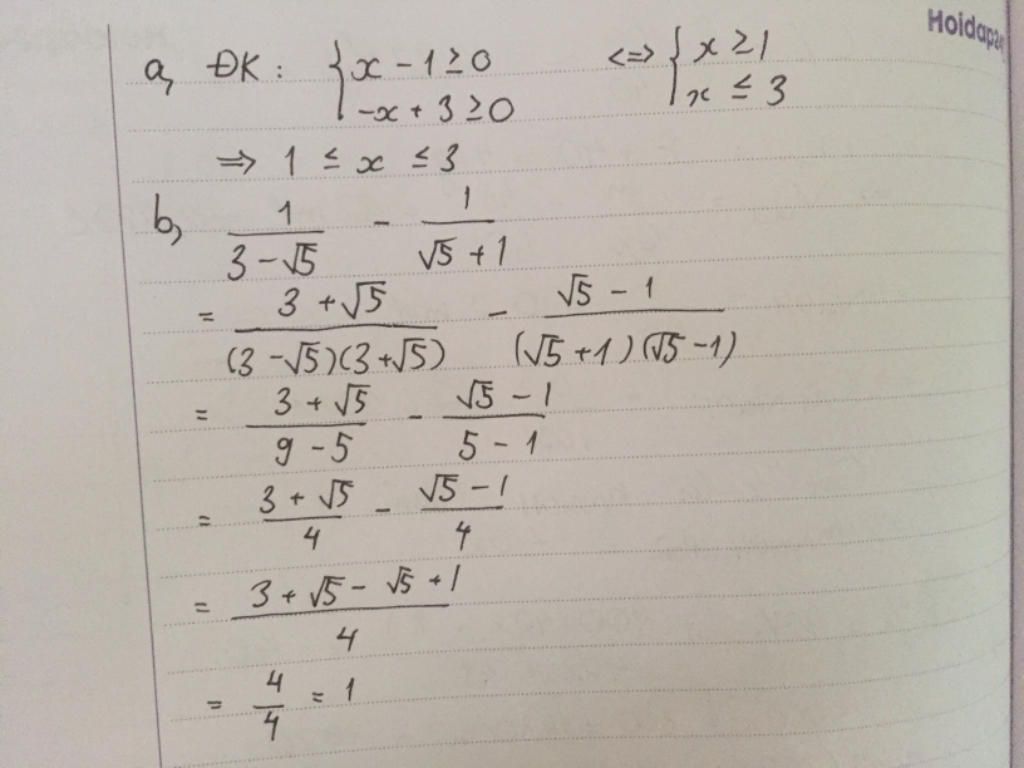 Hoidap24
a, ĐK : { x - 1 ≥ 0 <=> { x ≥ 1
-x + 3 ≥ 0 x ≤ 3
=> 1 ≤ x ≤ 3
b, 1/(3 - √5) - 1/(√5 + 1)
= (3 + √5)/((3 - √5)(3 + √5)) - (√5 - 1)/((√5 + 1)(√5 - 1))
= (3 + √5)/(9 - 5) - (√5 - 1)/(5 - 1)
= (3 + √5)/4 - (√5 - 1)/4
= (3 + √5 - √5 + 1)/4
= 4/4 = 1